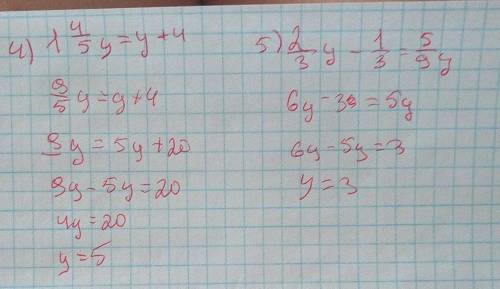 4) 1 4/5 y = y + 4
9/5 y = y + 4
9y = 5y + 20
9y - 5y = 20
4y = 20
y = 5
5) 2/3 y - 1/3 = 5/9 y
6y - 3 = 5y
6y - 5y = 3
y = 3